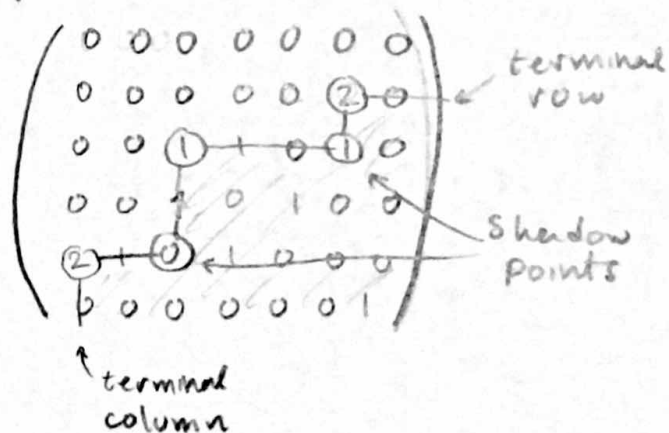 0 0 0 0 0 0 0
0 0 0 0 0 2 0
0 0 1 1 0 1 0
0 0 1 0 1 0 0
2 1 0 1 0 0 0
0 0 0 0 0 0 1
terminal
row
Shadow
points
terminal
column